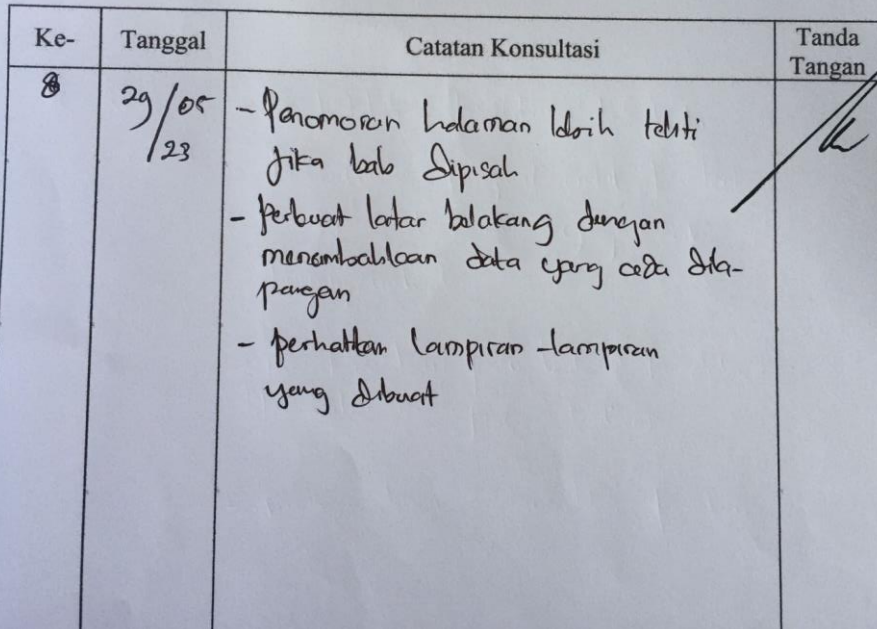 Ke- Tanggal Catatan Konsultasi Tanda Tangan
8 29/05/23
- Penomoran halaman lebih teliti
jika bab dipisah
- Perbuat latar belakang dengan
menambahkan data yang ada dila-
pangan
- perhatikan lampiran-lampiran
yang dibuat